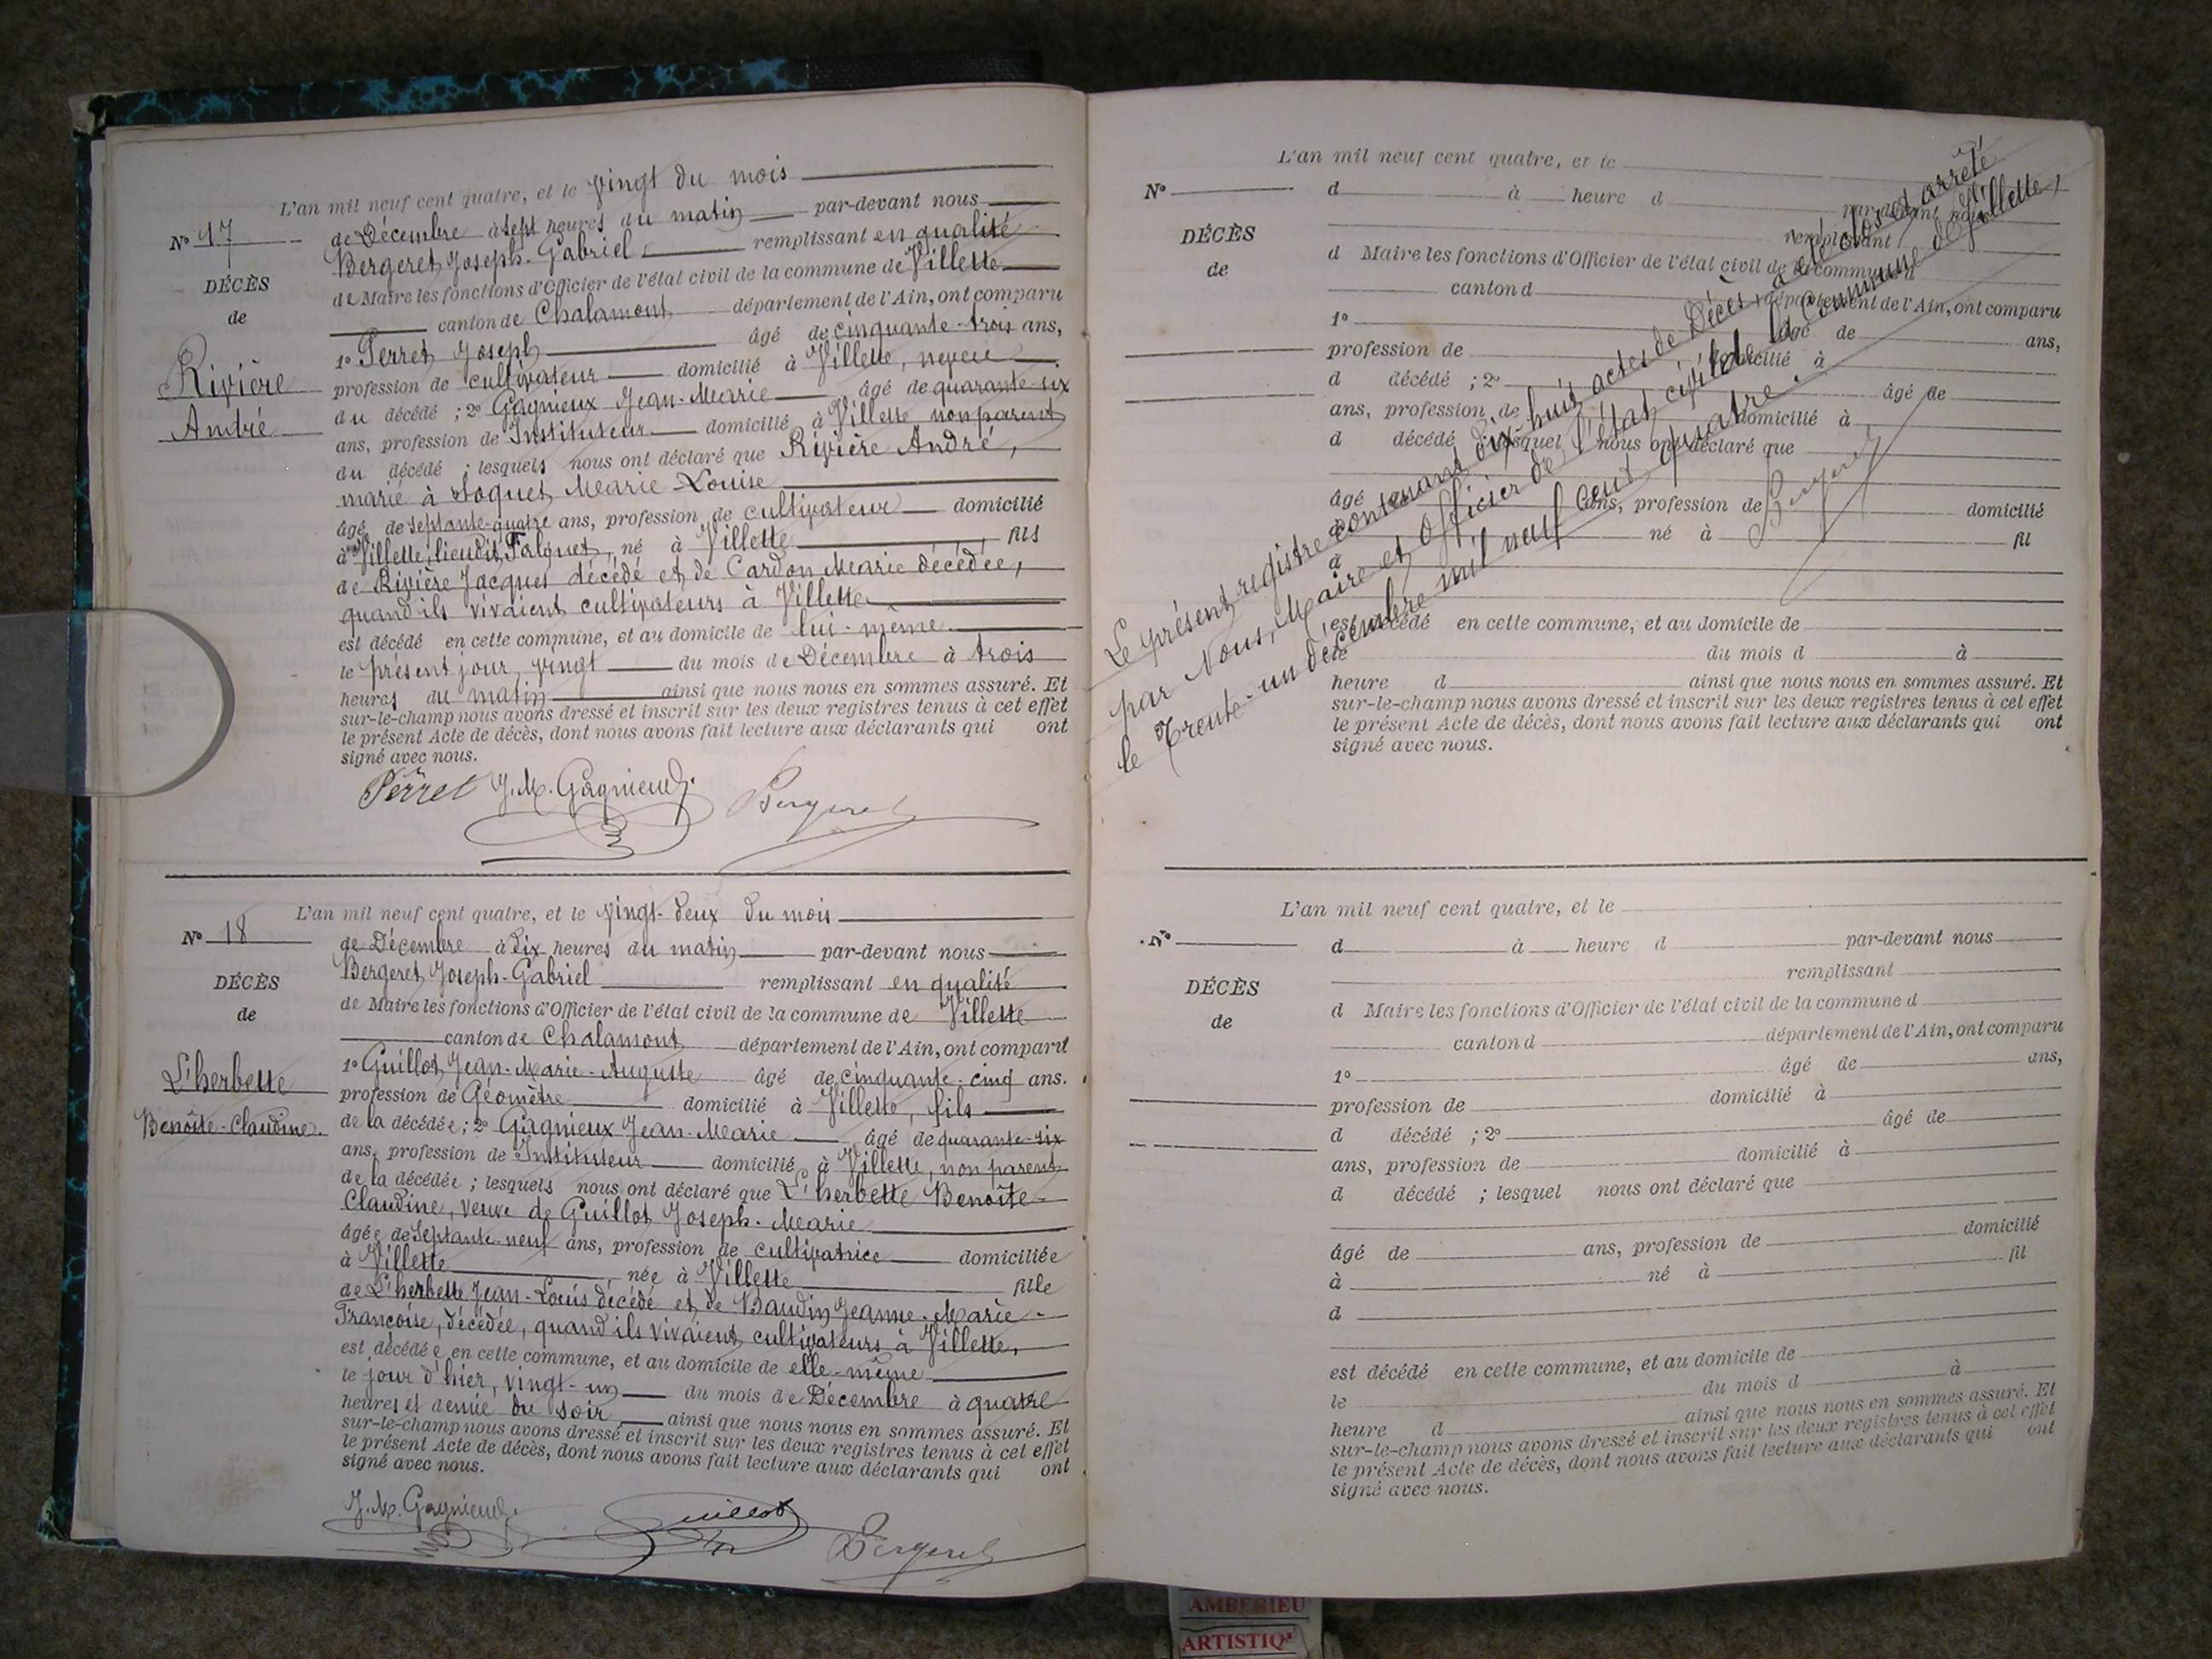 L'an mil neuf cent quatre, et le vingt du mois
N° 17
de Décembre à sept heures du matin par-devant nous
Bergeret Joseph-Gabriel remplissant en qualité
DÉCÈS
de Maire les fonctions d'Officier de l'état civil de la commune de Villette
de
canton de Chalamont département de l'Ain, ont comparu
1° Perret Joseph âgé de cinquante-trois ans,
Rivière
profession de cultivateur domicilié à Villette, neveu
du décédé ; 2° Gagnieux Jean-Marie âgé de quarante-six
André
ans, profession de Instituteur domicilié à Villette non parent
du décédé ; lesquels nous ont déclaré que Rivière André,
marié à Loquet Marie-Louise
âgé de septante-quatre ans, profession de cultivateur domicilié
à Villette, lieudit Falquet, né à Villette, fils
de Rivière Jacques décédé et de Cardon Marie décédée,
quand ils vivaient cultivateurs à Villette
est décédé en cette commune, et au domicile de lui-même
le présent jour, vingt du mois de Décembre à trois
heures du matin ainsi que nous nous en sommes assuré. Et
sur-le-champ nous avons dressé et inscrit sur les deux registres tenus à cet effet
le présent Acte de décès, dont nous avons fait lecture aux déclarants qui ont
signé avec nous.
Perret J. M. Gagnieux Bergeret
L'an mil neuf cent quatre, et le vingt-deux du mois
N° 18
de Décembre à dix heures du matin par-devant nous
Bergeret Joseph-Gabriel remplissant en qualité
DÉCÈS
de Maire les fonctions d'Officier de l'état civil de la commune de Villette
de
canton de Chalamont département de l'Ain, ont comparu
1° Guillot Jean-Marie-Auguste âgé de cinquante-cinq ans.
L'herbette
profession de Géomètre domicilié à Villette, fils
Benoîte-Claudine.
de la décédée ; 2° Gagnieux Jean-Marie âgé de quarante-six
ans, profession de Instituteur domicilié à Villette, non parent
de la décédée ; lesquels nous ont déclaré que L'herbette Benoîte-
Claudine, veuve de Guillot Joseph-Marie
âgée de Septante-neuf ans, profession de cultivatrice domiciliée
à Villette, née à Villette fille
de L'herbette Jean-Louis décédé et de Baudin Jeanne-Marie-
Françoise, décédée, quand ils vivaient cultivateurs à Villette,
est décédée en cette commune, et au domicile de elle-même
le jour d'hier, vingt-un du mois de Décembre à quatre
heures et demie du soir ainsi que nous nous en sommes assuré. Et
sur-le-champ nous avons dressé et inscrit sur les deux registres tenus à cet effet
le présent Acte de décès, dont nous avons fait lecture aux déclarants qui ont
signé avec nous.
J. M. Gagnieux Guillot Bergeret
L'an mil neuf cent quatre, et le
N°
d à heure d par-devant nous
remplissant
DÉCÈS
d Maire les fonctions d'Officier de l'état civil de la commune d
de
canton d département de l'Ain, ont comparu
1° âgé de ans,
profession de domicilié à
d décédé ; 2° âgé de
ans, profession de domicilié à
d décédé ; lesquel nous ont déclaré que
âgé de ans, profession de domicilié
à né à fil
d
est décédé en cette commune, et au domicile de
le du mois d à
heure d ainsi que nous nous en sommes assuré. Et
sur-le-champ nous avons dressé et inscrit sur les deux registres tenus à cet effet
le présent Acte de décès, dont nous avons fait lecture aux déclarants qui ont
signé avec nous.
Le présent registre contenant dix-huit actes de Décès, a été clos et arrêté
par Nous, Maire et Officier de l'état civil de la Commune de Villette,
le Trente-un décembre mil neuf cent quatre.
Bergeret
L'an mil neuf cent quatre, et le
N°
d à heure d par-devant nous
remplissant
DÉCÈS
d Maire les fonctions d'Officier de l'état civil de la commune d
de
canton d département de l'Ain, ont comparu
1° âgé de ans,
profession de domicilié à
d décédé ; 2° âgé de
ans, profession de domicilié à
d décédé ; lesquel nous ont déclaré que
âgé de ans, profession de domicilié
à né à fil
d
est décédé en cette commune, et au domicile de
le du mois d à
heure d ainsi que nous nous en sommes assuré. Et
sur-le-champ nous avons dressé et inscrit sur les deux registres tenus à cet effet
le présent Acte de décès, dont nous avons fait lecture aux déclarants qui ont
signé avec nous.
AMBERIEU
ARTISTIQ